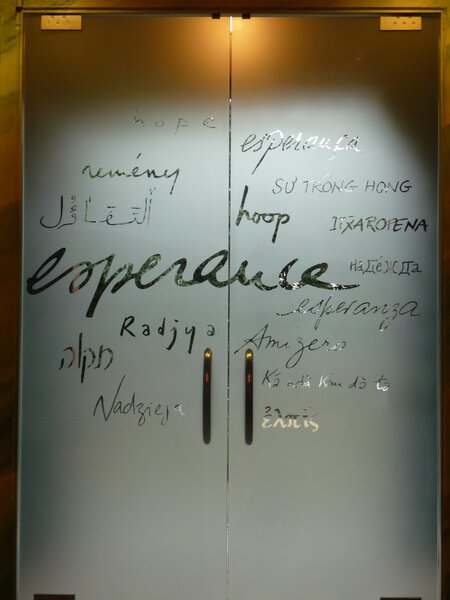 hope
esperança
remény
SỰ TRÔNG HỌNG
التفاؤل
hoop
ITXAROPENA
esperance
надежда
esperanza
Radjya
Amizero
תקוה
Nadzieja
ελπίς